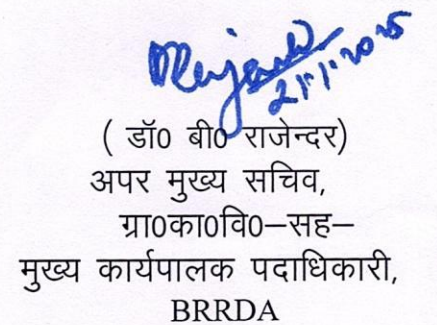 21.1.2025
( डॉ0 बी0 राजेन्दर)
अपर मुख्य सचिव,
ग्रा0का0वि0–सह–
मुख्य कार्यपालक पदाधिकारी,
BRRDA